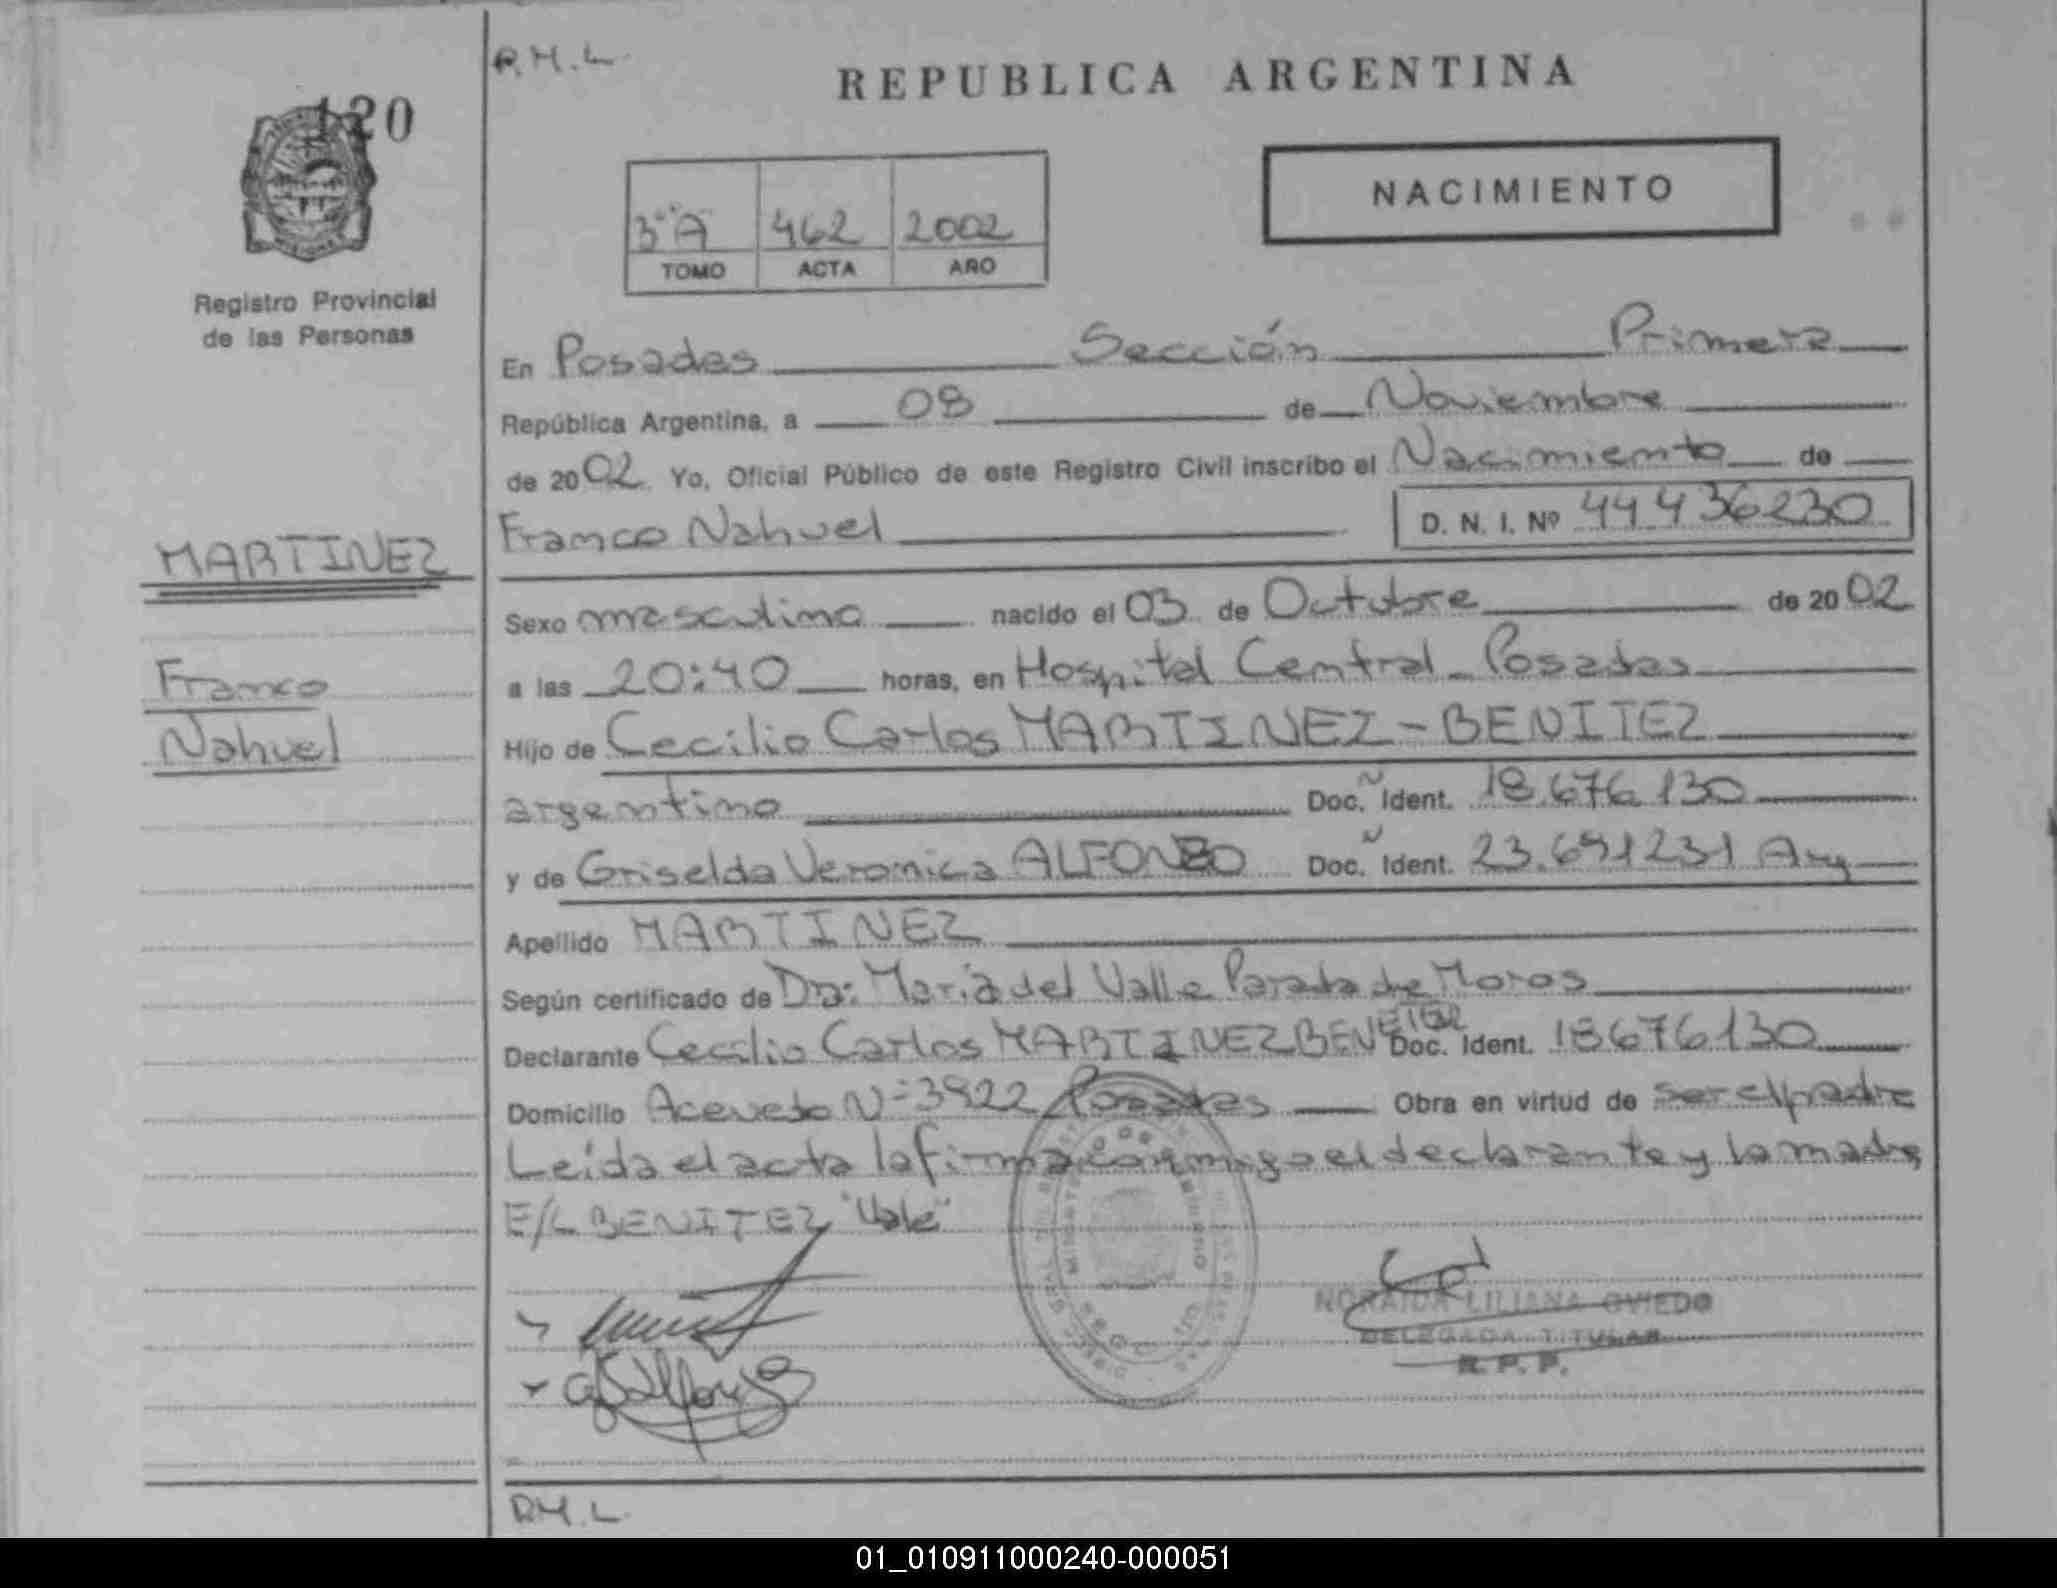 R.M.L.
120
REPUBLICA ARGENTINA
NACIMIENTO
3º "A" 462 2002
TOMO ACTA AÑO
Registro Provincial
de las Personas
En Posadas Sección Primera
República Argentina, a 08 de Noviembre
de 2002 Yo, Oficial Público de este Registro Civil inscribo el Nacimiento de
Franco Nahuel D. N. I. Nº 44.436230
MARTINEZ
Franco
Nahuel
Sexo masculino nacido el 03 de Octubre de 2002
a las 20:40 horas, en Hospital Central Posadas
Hijo de Cecilio Carlos MARTINEZ - BENITEZ
argentino Doc. Ident. 18.676.130
y de Griselda Veronica ALFONZO Doc. Ident. 23.691231 Arg
Apellido MARTINEZ
Según certificado de Dra: Maria del Valle Parada de Moros
Declarante Cecilio Carlos MARTINEZ BENEITEZ Doc. Ident. 18676130
Domicilio Acevedo Nº 3922 Posadas Obra en virtud de ser el padre
Leida el acta la firma conmigo el declarante y la madre
E/L BENITEZ "Vale"
NORAIDA LILIANA OVIEDO
DELEGADA TITULAR
R. P. P.
R.M.L.
01_010911000240-000051